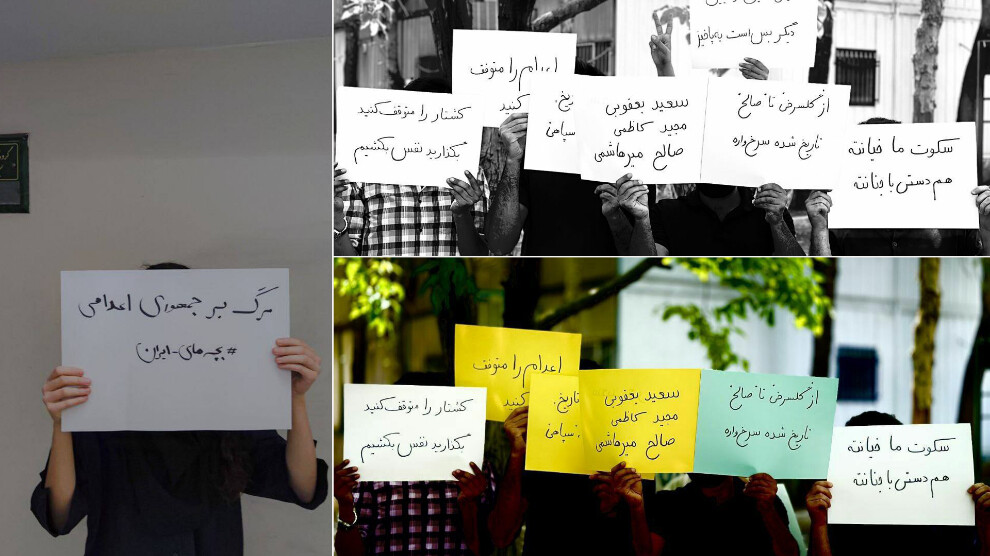 مرگ بر جمهوری اعدامی
#بچه‌های_ایران
دیگر بس است بپاخیز
اعدام را متوقف
کنید
کشتار را متوقف کنید
بگذارید نفس بکشیم
تاریخ.
سپاهی
سعید یعقوبی
مجید کاظمی
صالح میرهاشمی
از گلسرخی تا صالح
تاریخ شده سرخ‌واره
سکوت ما خیانته
هم دستی با جنانته
اعدام را متوقف
کنید
کشتار را متوقف کنید
بگذارید نفس بکشیم
تاریخ.
سپاهی
سعید یعقوبی
مجید کاظمی
صالح میرهاشمی
از گلسرخی تا صالح
تاریخ شده سرخ‌واره
سکوت ما خیانته
هم دستی با جنانته